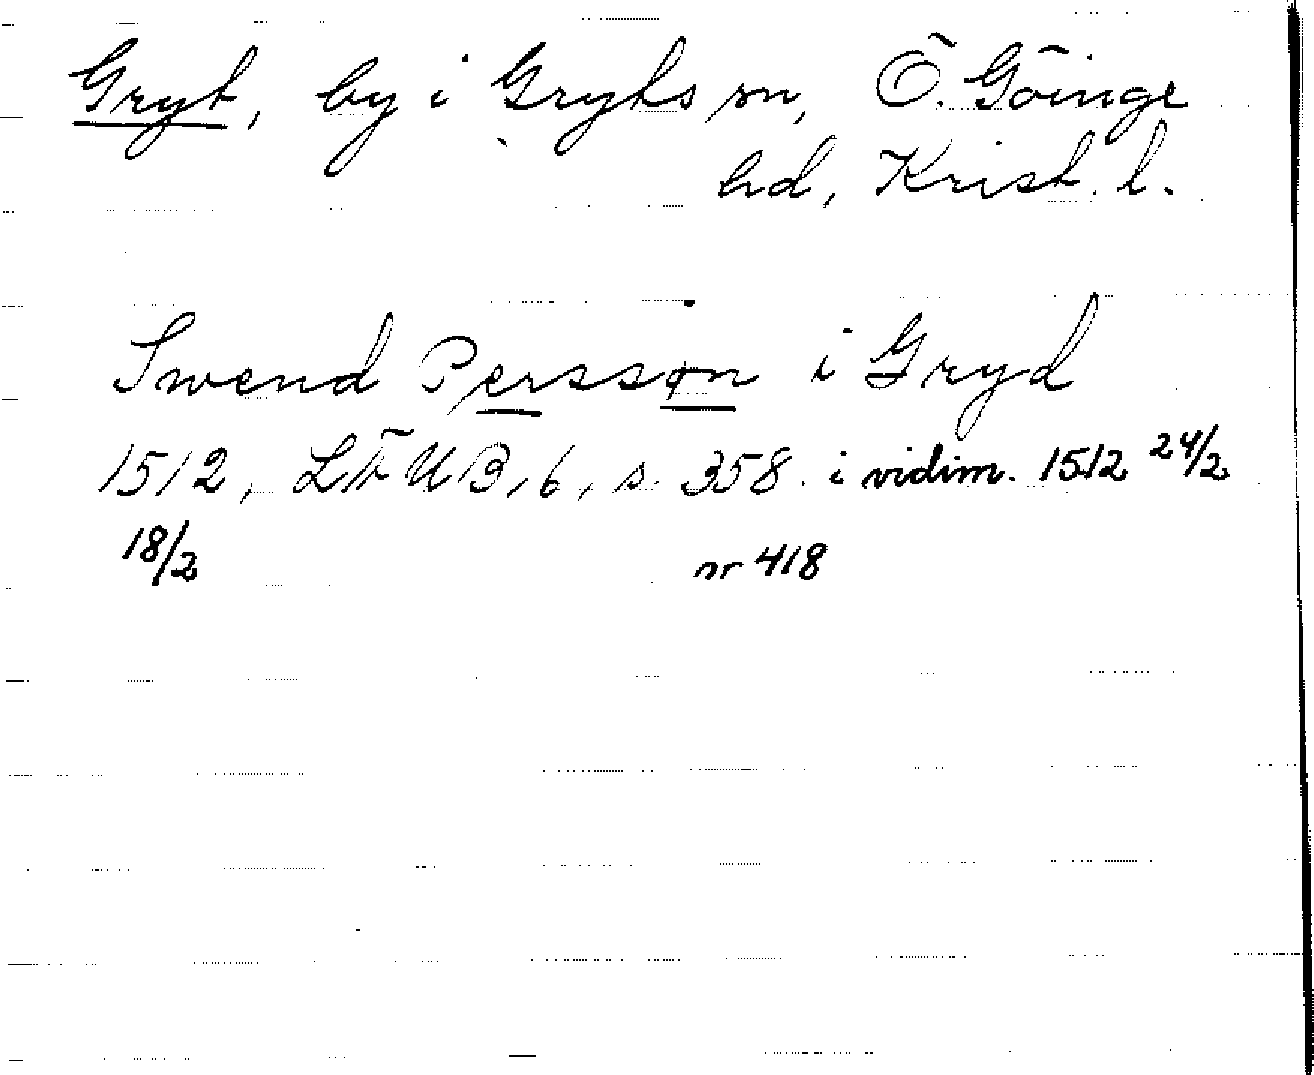 Gryt, by i Gryts sn, Ö. Göinge
hd, Krist. l.
Swend Perssøn i Gryd
1512, LÄUB, 6, s. 358. i vidim. 1512 24/2
18/2 nr 418